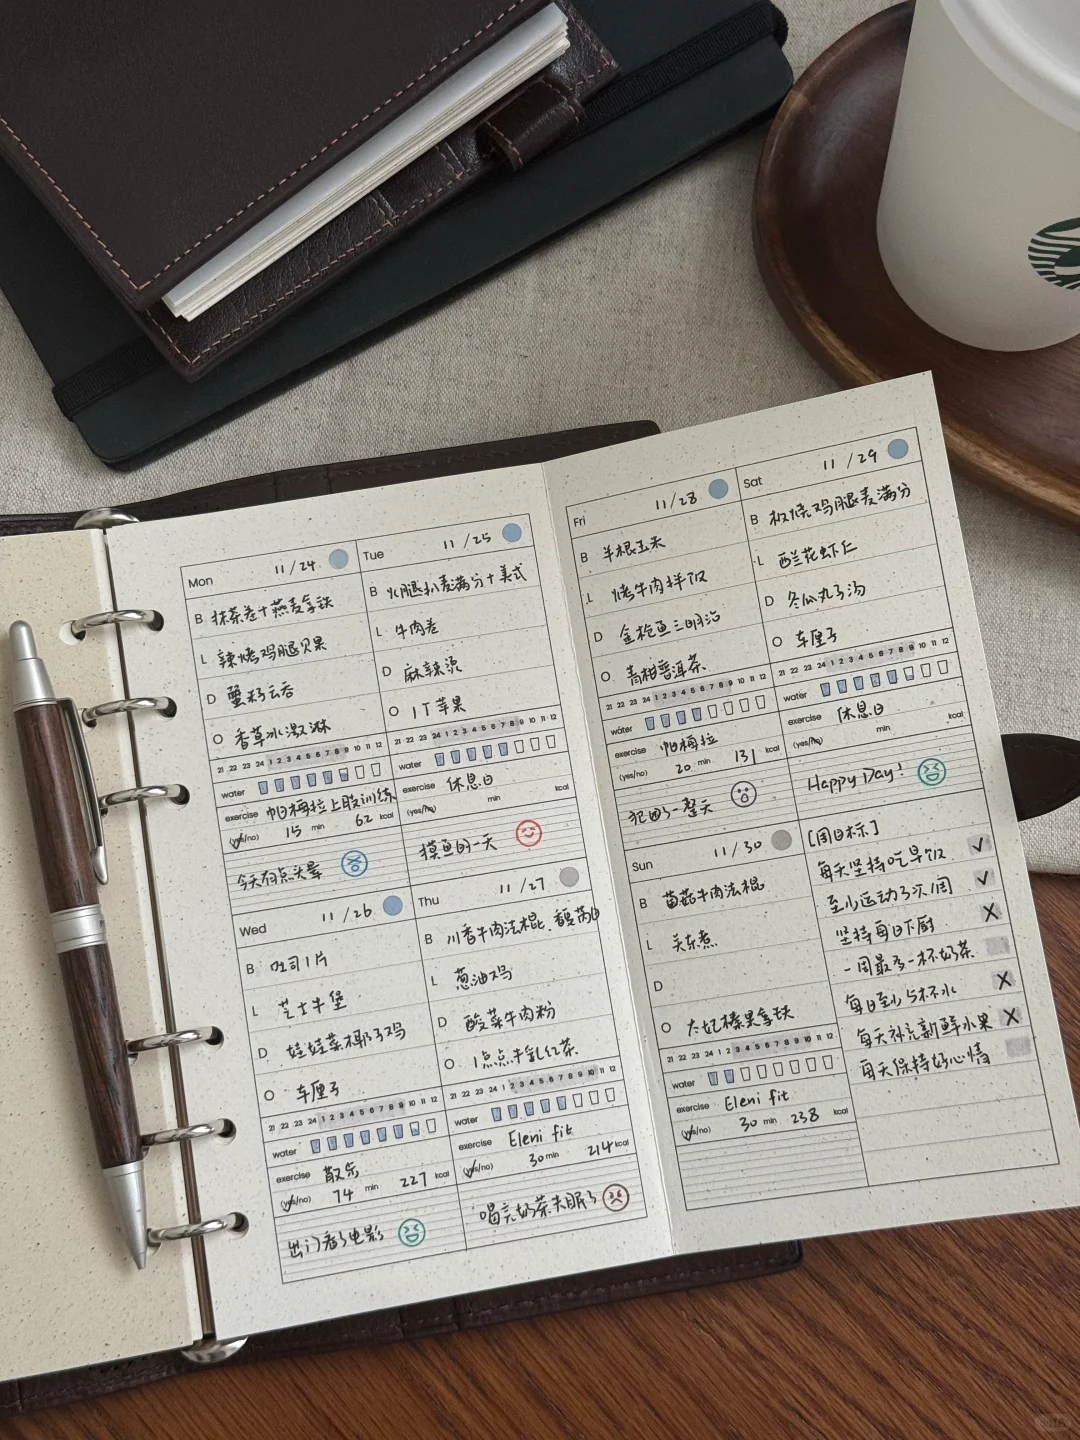 Mon 11/24
B 抹茶卷+燕麦拿铁
L 辣烤鸡腿贝果
D 蟹籽云吞
O 香草冰激淋
21 22 23 24 1 2 3 4 5 6 7 8 9 10 11 12
water
exercise 帕梅拉上肢训练
(yes/no) 15 min 62 kcal
今天有点头晕
Tue 11/25
B 火腿扒麦满分+美式
L 牛肉卷
D 麻辣烫
O 1个苹果
21 22 23 24 1 2 3 4 5 6 7 8 9 10 11 12
water
exercise 休息日
(yes/no) min kcal
摸鱼的一天
Wed 11/26
B 吐司1片
L 芝士牛堡
D 娃娃菜椰子鸡
O 车厘子
21 22 23 24 1 2 3 4 5 6 7 8 9 10 11 12
water
exercise 散步
(yes/no) 74 min 227 kcal
出门看了电影
Thu 11/27
B 川香牛肉法棍、馥芮白
L 葱油鸡
D 酸菜牛肉粉
O 1点点牛乳红茶
21 22 23 24 1 2 3 4 5 6 7 8 9 10 11 12
water
exercise Eleni fit
(yes/no) 30 min 214 kcal
喝完奶茶失眠了
Fri 11/28
B 半根玉米
L 烤牛肉拌饭
D 金枪鱼三明治
O 青柑普洱茶
21 22 23 24 1 2 3 4 5 6 7 8 9 10 11 12
water
exercise 帕梅拉
(yes/no) 20 min 131 kcal
犯困了一整天
Sat 11/29
B 板烧鸡腿麦满分
L 西兰花虾仁
D 冬瓜丸子汤
O 车厘子
21 22 23 24 1 2 3 4 5 6 7 8 9 10 11 12
water
exercise 休息日
(yes/no) min kcal
Happy Day!
Sun 11/30
B 菌菇牛肉法棍
L 关东煮
D
O 太妃榛果拿铁
21 22 23 24 1 2 3 4 5 6 7 8 9 10 11 12
water
exercise Eleni fit
(yes/no) 30 min 238 kcal
[周目标]
每天坚持吃早饭 ✓
至少运动3次/周 ✓
坚持每日下厨 X
一周最多一杯奶茶
每日至少5杯水 X
每天补充新鲜水果 X
每天保持好心情